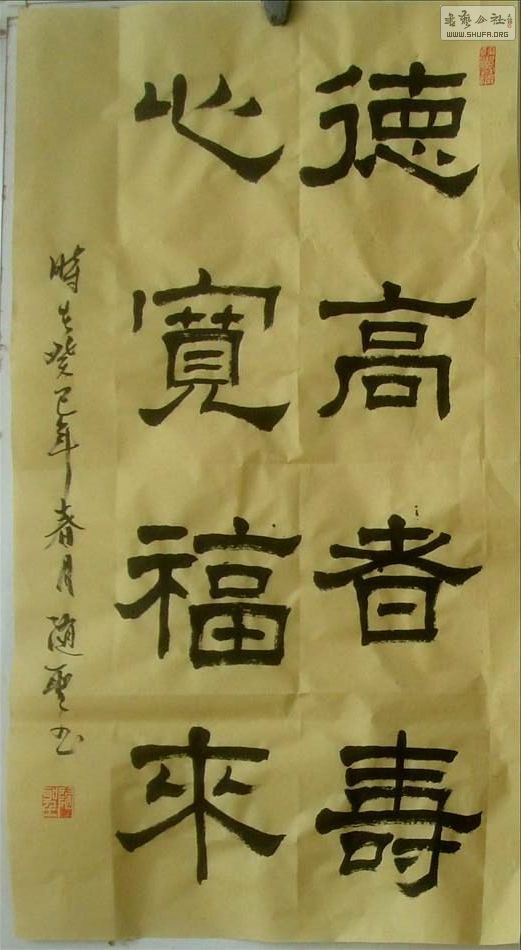 德高者壽
心寬福來
時在癸巳年春月隨聖书
書藝公社
WWW.SHUFA.ORG